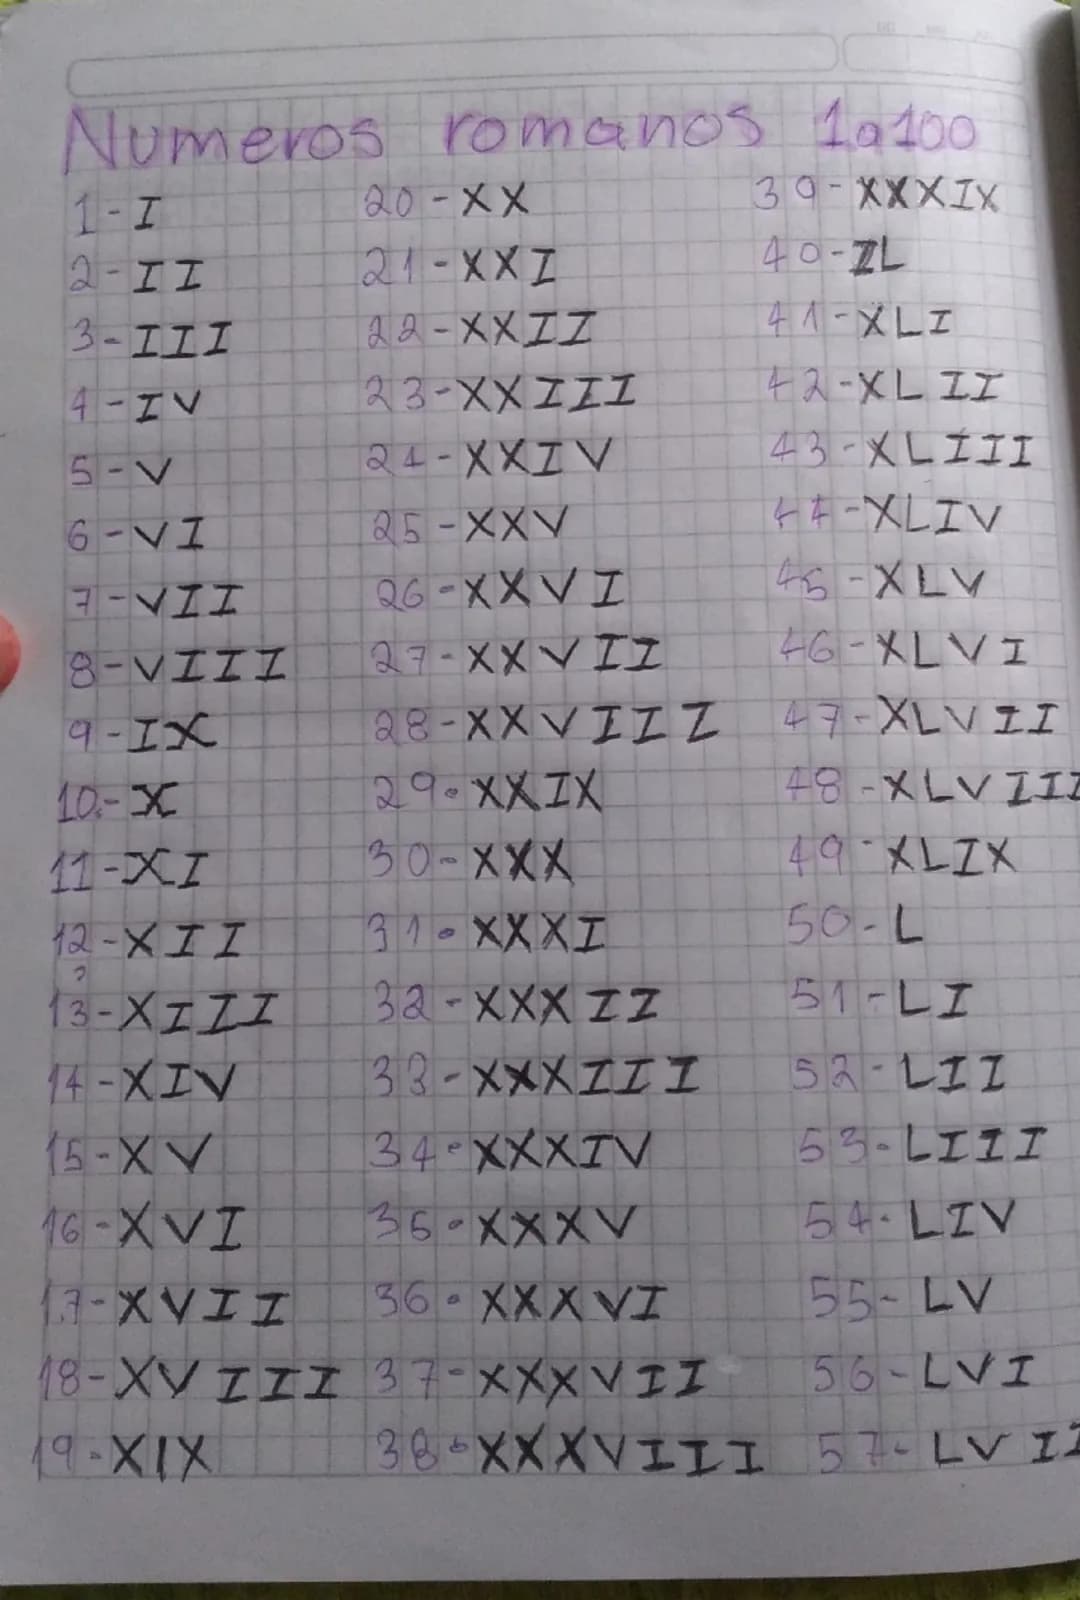 Numeros romanos 1a100
1-I
2-II
3-III
4-IV
5-V
6-VI
7-VII
8-VIII
9-IX
10.-X
11-XI
12-XII
13-XIII
14-XIV
15-XV
16-XVI
17-XVII
18-XVIII
19-XIX
20-XX
21-XXI
22-XXII
23-XXIII
24-XXIV
25-XXV
26-XXVI
27-XXVII
28-XXVIII
29-XXIX
30-XXX
31-XXXI
32-XXXII
33-XXXIII
34-XXXIV
35-XXXV
36-XXXVI
37-XXXVII
38-XXXVIII
39-XXXIX
40-IL
41-XLI
42-XLII
43-XLIII
44-XLIV
45-XLV
46-XLVI
47-XLVII
48-XLVIII
49-XLIX
50-L
51-LI
52-LII
53-LIII
54-LIV
55-LV
56-LVI
57-LVII